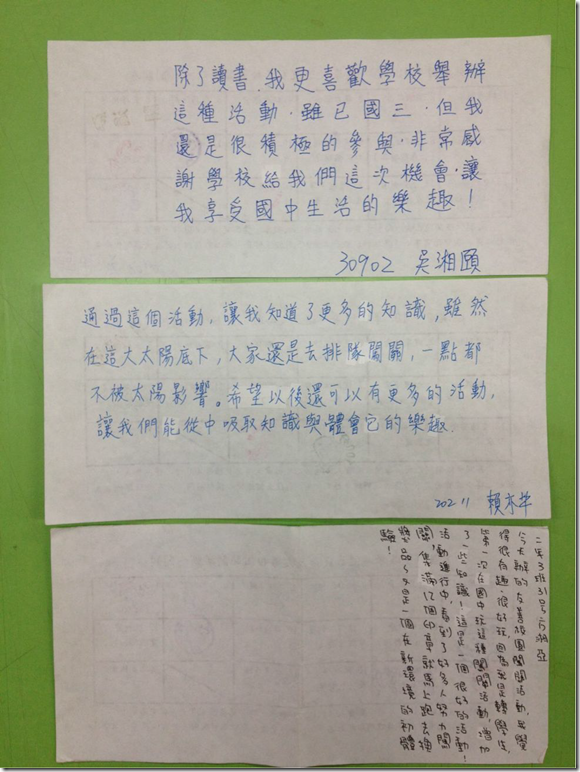 除了讀書,我更喜歡學校舉辦
這種活動,雖已國三,但我
還是很積極的參與,非常感
謝學校給我們這次機會,讓
我享受國中生活的樂趣!
30902 吳湘頤
通過這個活動,讓我知道了更多的知識,雖然
在這大太陽底下,大家還是去排隊闖關,一點都
不被太陽影響。希望以後還可以有更多的活動,
讓我們能從中吸取知識與體會它的樂趣.
20211 賴亦芊
二年3班31號 湘亞
今天辦的友善校園闖關活動,我覺
得很有趣、很好玩,因為我是轉學生,
第一次在國中玩這種闖關活動,增加
了一些知識!這是一個很好的活動!
活動進行中,看到了好多人努力闖
關,集滿12個印章就馬上跑去換
獎品,今天是一個在新環境的初體
驗!